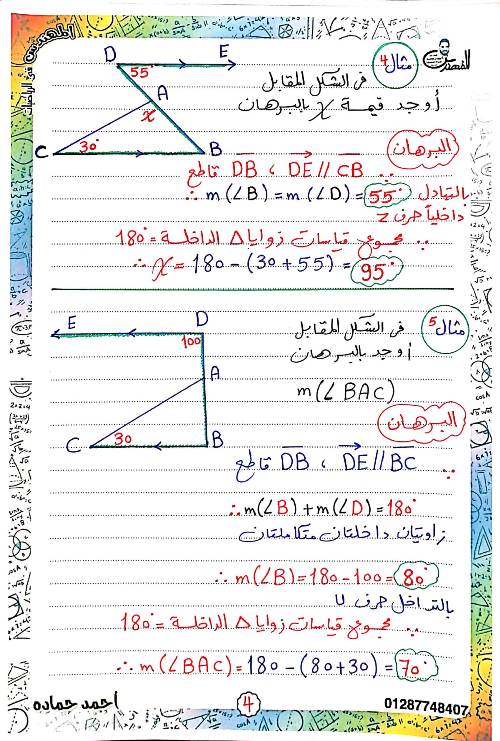 المهندس في الرياضيات
المهندس
مثال 4
في الشكل المقابل
أوجد قيمة x بالبرهان
D E
55°
A
x
C 30° B
البرهان
∵ DE // CB ، DB قاطع
∴ m(∠B) = m(∠D) = 55° بالتبادل
داخلياً حرف Z
∵ مجموع قياسات زوايا Δ الداخلة = 180°
∴ x = 180 - (30 + 55) = 95°
مثال 5
في الشكل المقابل
أوجد بالبرهان
m(∠BAC)
E D
100
A
C 30 B
البرهان
∵ DE // BC ، DB قاطع
∴ m(∠B) + m(∠D) = 180°
زاويتان داخلتان متكاملتان
∴ m(∠B) = 180 - 100 = 80°
بالتداخل حرف U
∵ مجموع قياسات زوايا Δ الداخلة = 180°
∴ m(∠BAC) = 180 - (80+30) = 70°
احمد حماده
4
01287748407